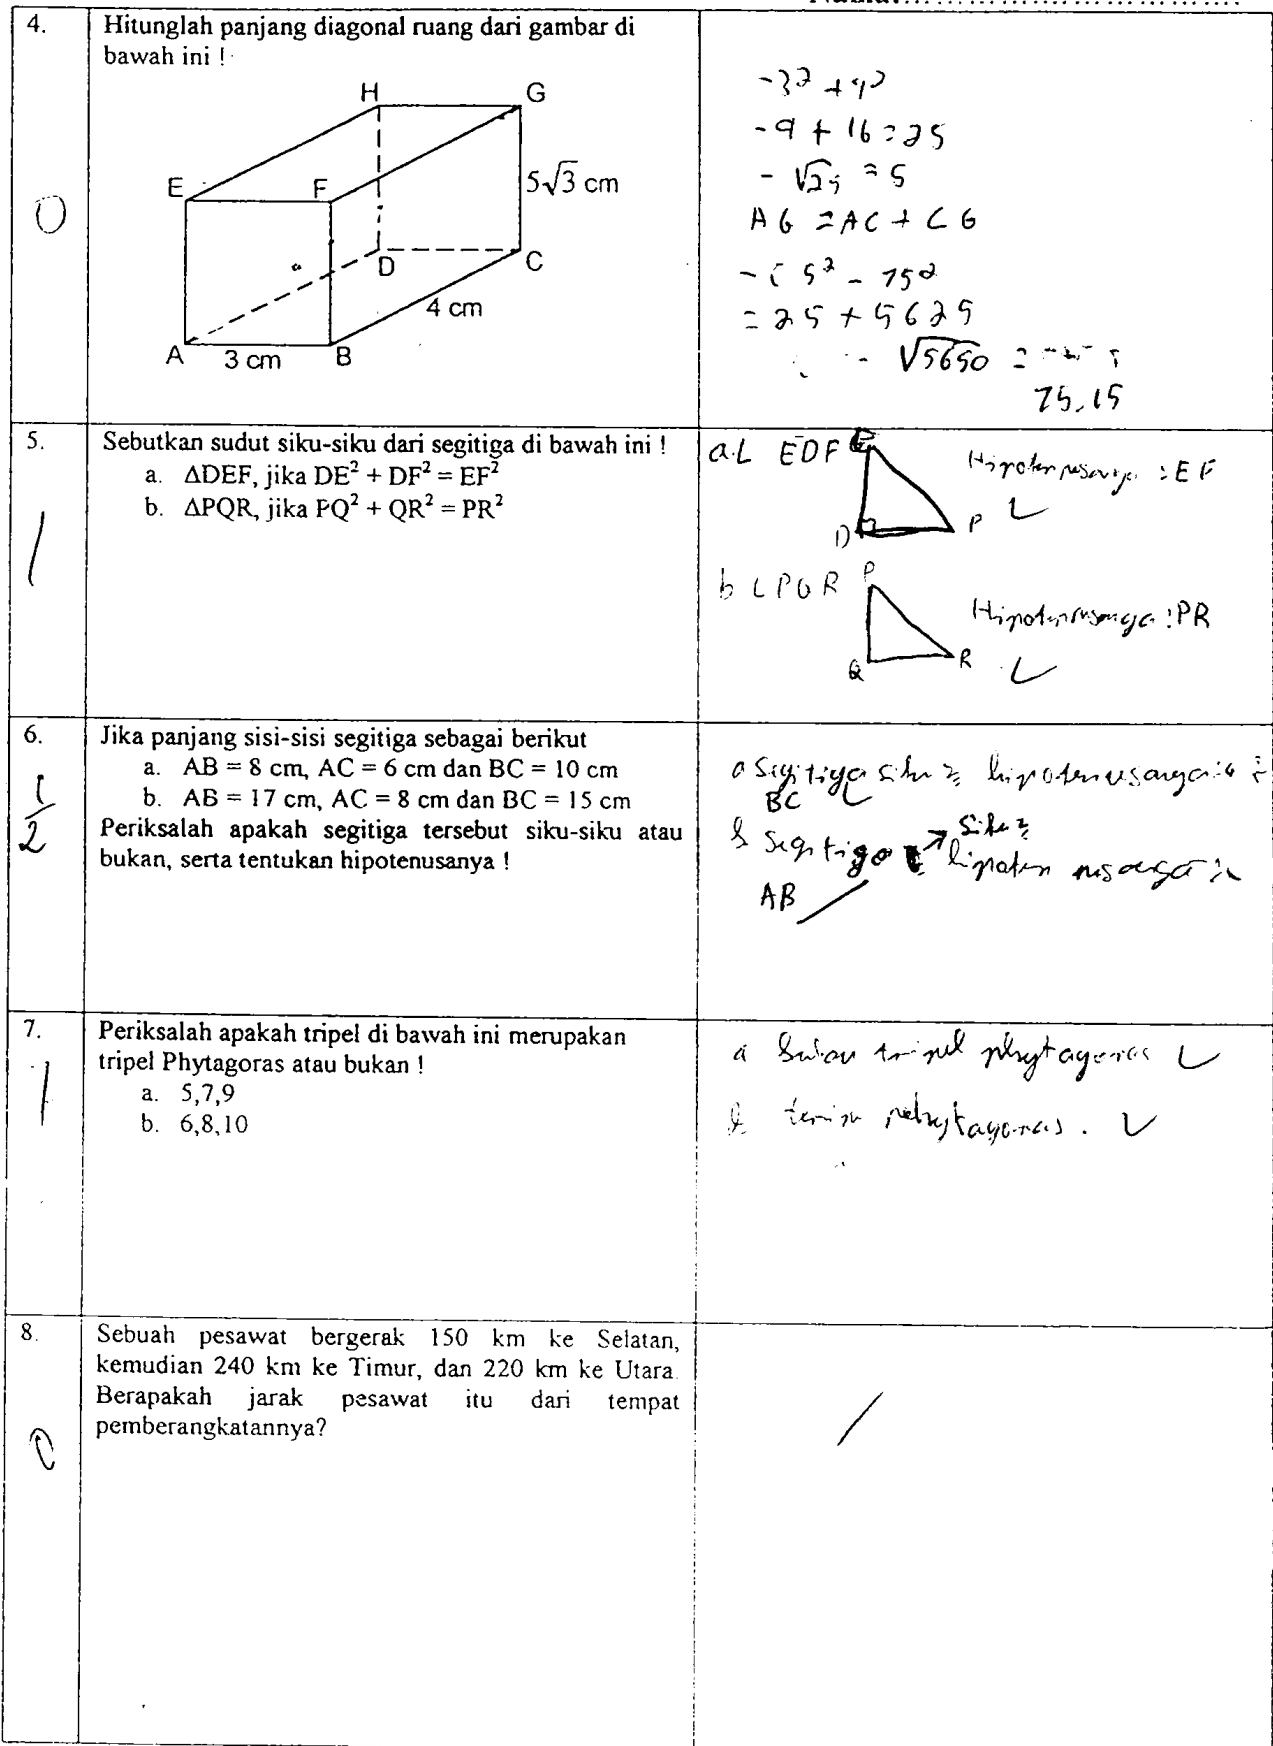 4.
Hitunglah panjang diagonal ruang dari gambar di
bawah ini !
H
G
E
F
5√3 cm
D
C
4 cm
A
3 cm
B
0
- 9 + 16 = 25
- √25 = 5
AG = AC + CG
= 25 + 5625
√5650 =
75,15
5.
Sebutkan sudut siku-siku dari segitiga di bawah ini !
a. ΔDEF, jika DE² + DF² = EF²
b. ΔPQR, jika PQ² + QR² = PR²
1
a. L EDF
Hipotenusanya : EF
D
P
b L PQR
P
Hipotenusanya : PR
Q
R
6.
Jika panjang sisi-sisi segitiga sebagai berikut
a. AB = 8 cm, AC = 6 cm dan BC = 10 cm
b. AB = 17 cm, AC = 8 cm dan BC = 15 cm
Periksalah apakah segitiga tersebut siku-siku atau
bukan, serta tentukan hipotenusanya !
1/2
a Segitiga siku2 hipotenusanya :
BC
siku2
b Segitiga hipotenusanya :
AB
7.
Periksalah apakah tripel di bawah ini merupakan
tripel Phytagoras atau bukan !
a. 5,7,9
b. 6,8,10
1
a bukan tripel phytagoras
8.
Sebuah pesawat bergerak 150 km ke Selatan,
kemudian 240 km ke Timur, dan 220 km ke Utara.
Berapakah jarak pesawat itu dari tempat
pemberangkatannya?
0